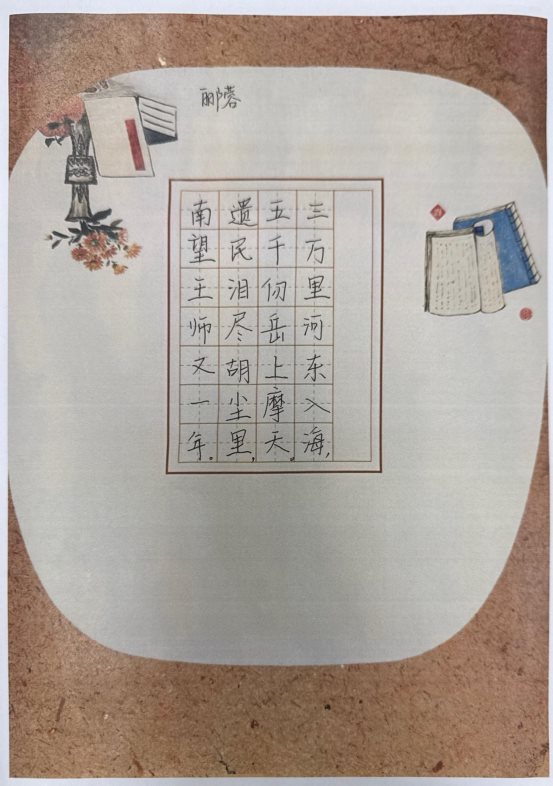 郦蓉
三万里河东入海，
五千仞岳上摩天。
遗民泪尽胡尘里，
南望王师又一年。